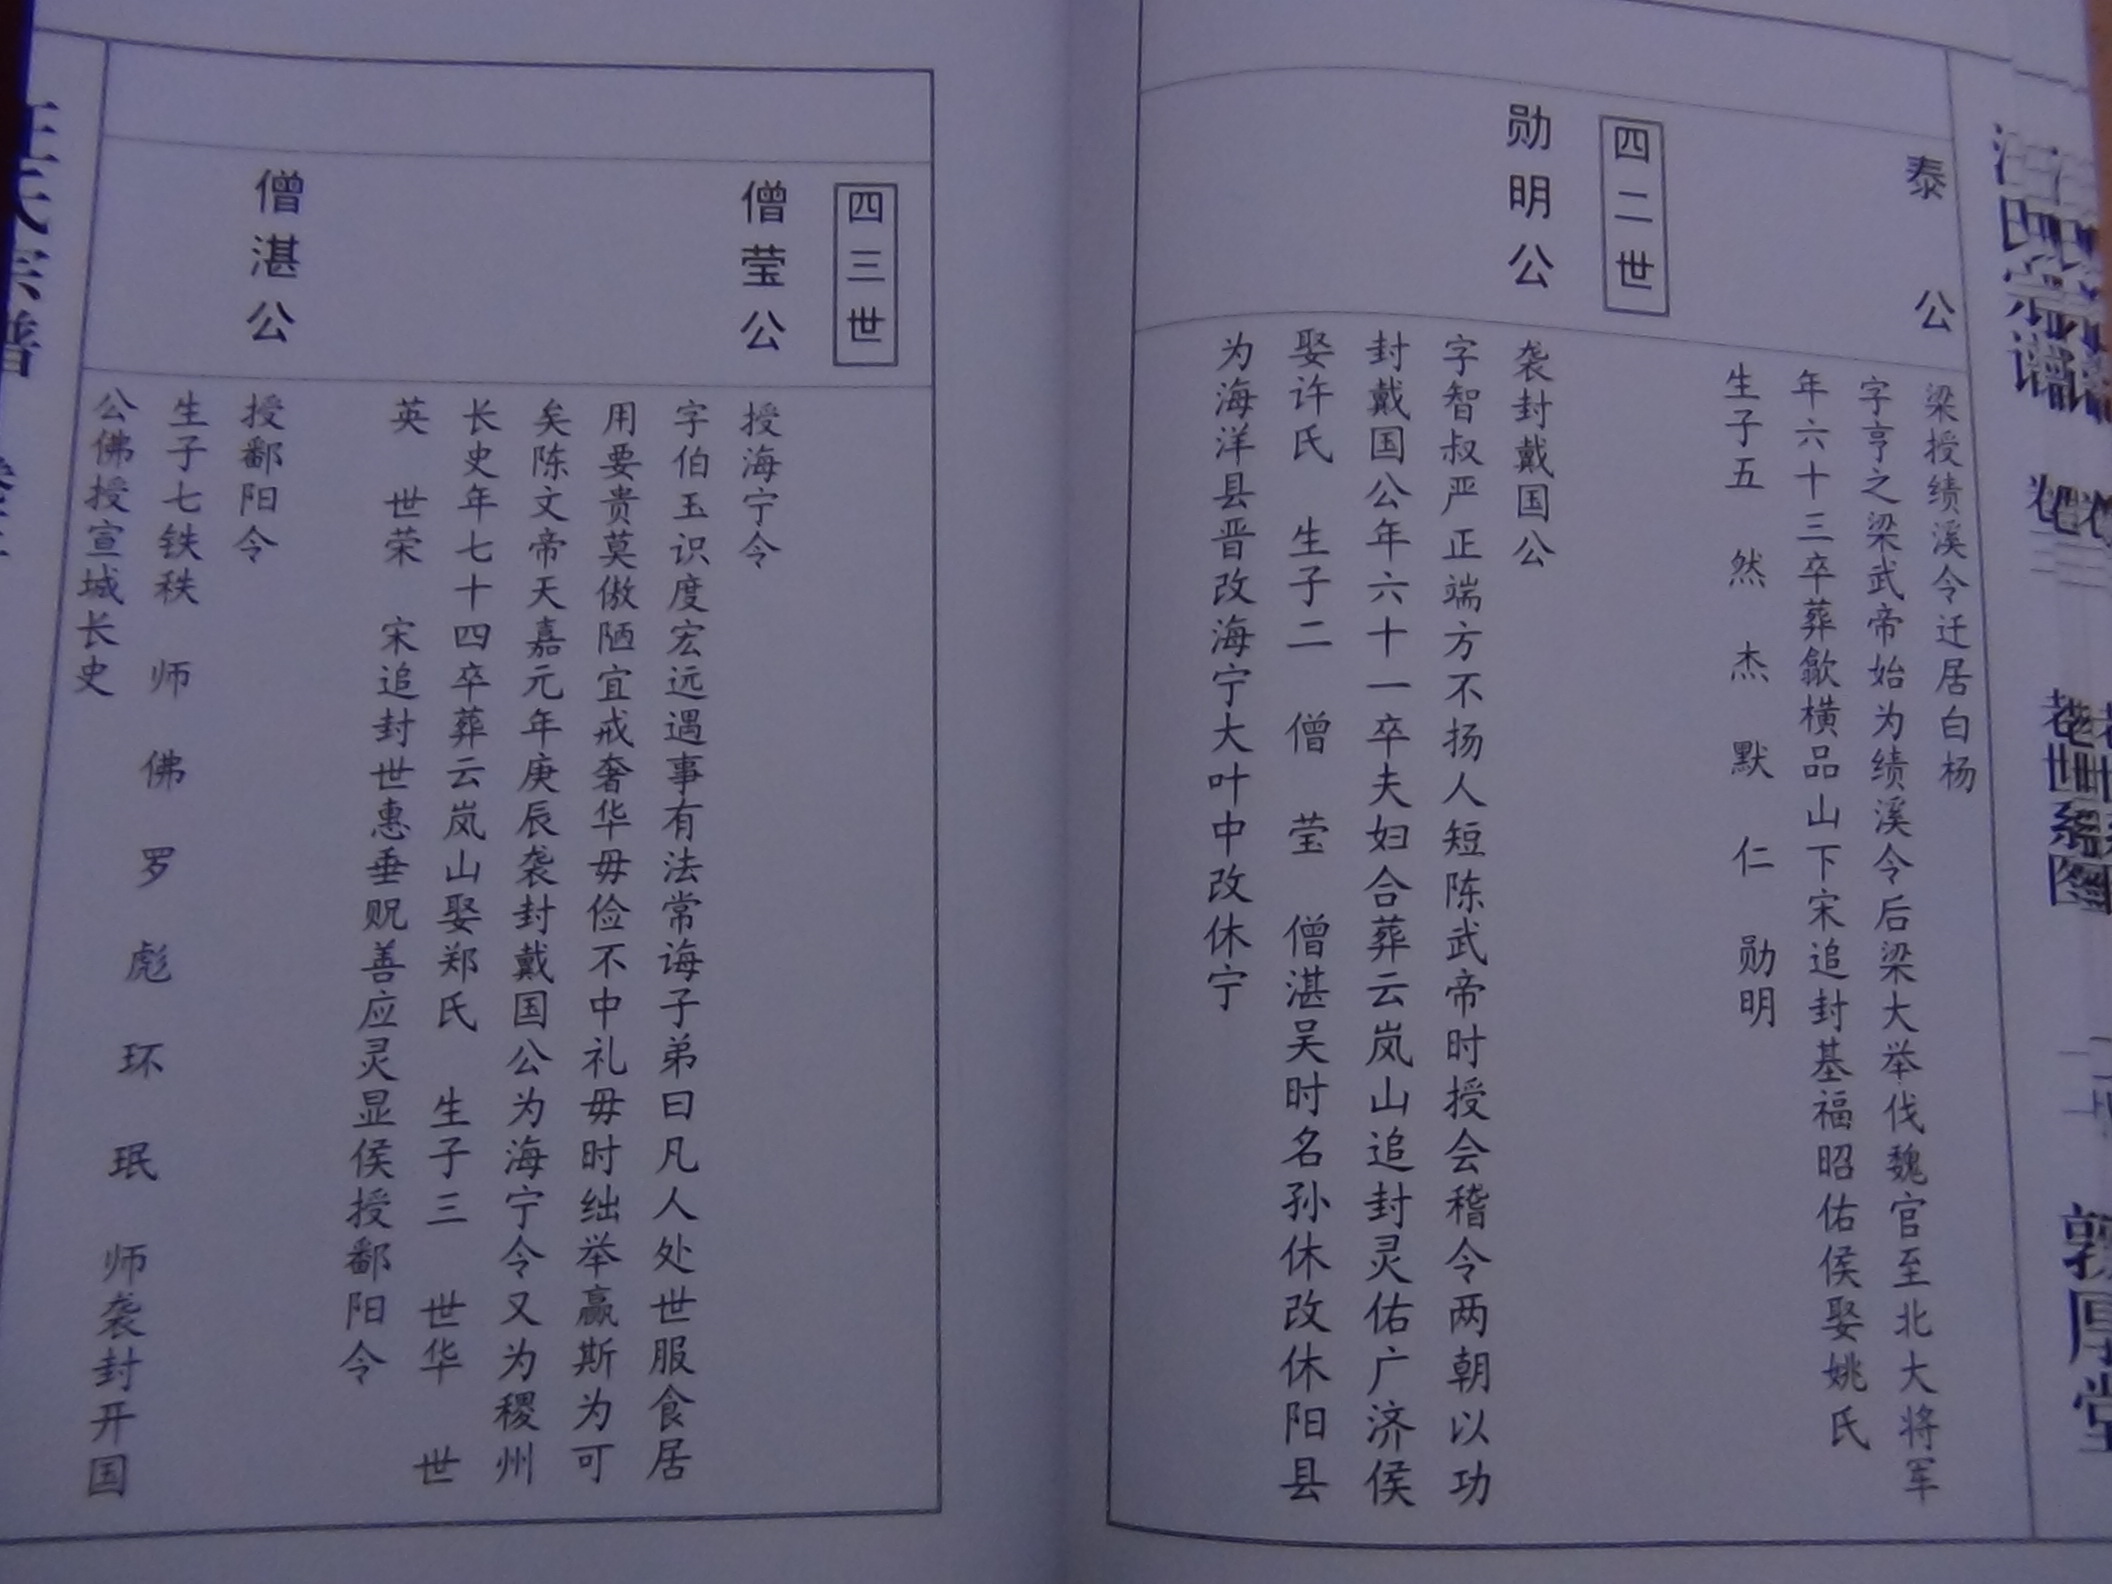 泰公
梁授绩溪令迁居白杨
字亨之梁武帝始为绩溪令后梁大举伐魏官至北大将军
年六十三卒葬歙横品山下宋追封基福昭佑侯娶姚氏
生子五 然 杰 默 仁 勋明
四二世
勋明公
袭封戴国公
字智叔严正端方不扬人短陈武帝时授会稽令两朝以功
封戴国公年六十一卒夫妇合葬云岚山追封灵佑广济侯
娶许氏 生子二 僧莹 僧湛吴时名孙休改休阳县
为海洋县晋改海宁大叶中改休宁
四三世
僧莹公
授海宁令
字伯玉识度宏远遇事有法常诲子弟曰凡人处世服食居
用要贵莫傲陋宜戒奢华毋俭不中礼毋时绌举赢斯为可
矣陈文帝天嘉元年庚辰袭封戴国公为海宁令又为稷州
长史年七十四卒葬云岚山娶郑氏 生子三 世华 世
英 世荣 宋追封世惠垂贶善应灵显侯授鄱阳令
僧湛公
授鄱阳令
生子七铁秩 师 佛 罗 彪 环 珉 师袭封开国
公佛授宣城长史
氏宗谱